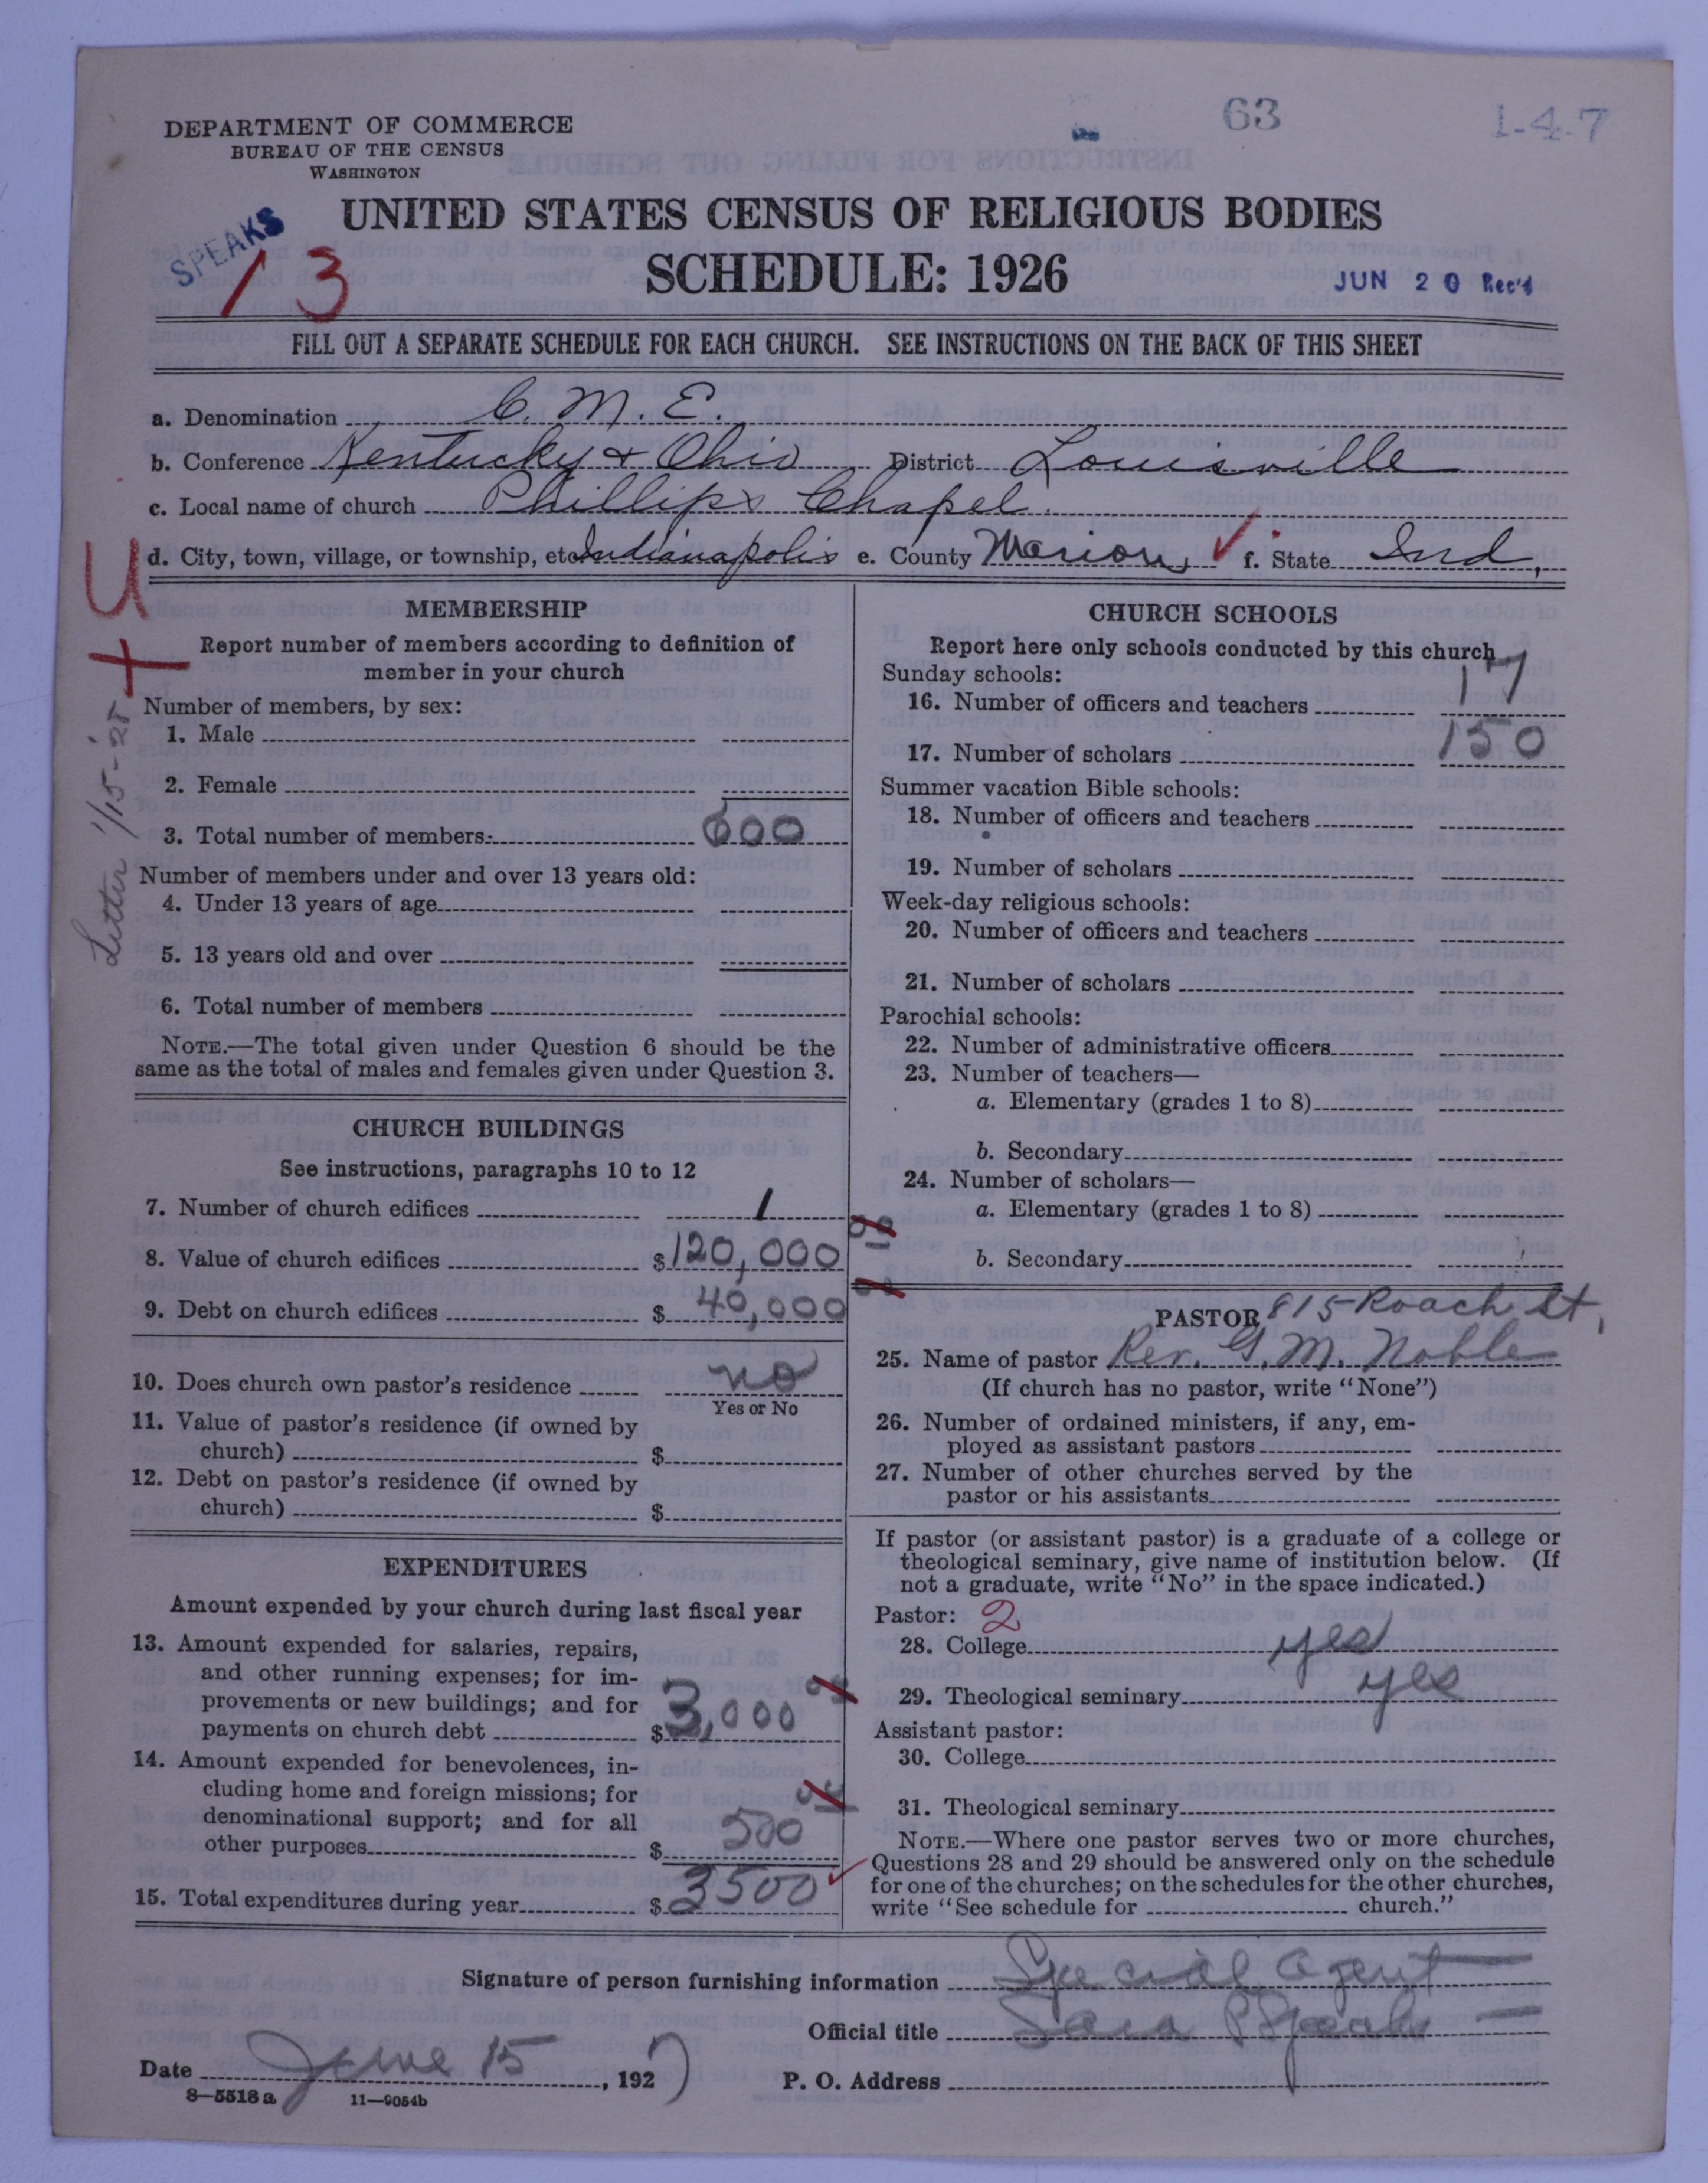 63
1-4-7
DEPARTMENT OF COMMERCE
BUREAU OF THE CENSUS
WASHINGTON
UNITED STATES CENSUS OF RELIGIOUS BODIES
SPEAKS
13
SCHEDULE: 1926
JUN 20 Rec'd
FILL OUT A SEPARATE SCHEDULE FOR EACH CHURCH. SEE INSTRUCTIONS ON THE BACK OF THIS SHEET
a. Denomination C. M. E.
b. Conference Kentucky & Ohio District Louisville
c. Local name of church Phillips Chapel
d. City, town, village, or township, etc Indianapolis e. County Marion, f. State Ind,
U
Letter 1/15-'28
MEMBERSHIP
Report number of members according to definition of
member in your church
Number of members, by sex:
1. Male
2. Female
3. Total number of members: 600
Number of members under and over 13 years old:
4. Under 13 years of age
5. 13 years old and over
6. Total number of members
NOTE.—The total given under Question 6 should be the
same as the total of males and females given under Question 3.
CHURCH BUILDINGS
See instructions, paragraphs 10 to 12
7. Number of church edifices 1
8. Value of church edifices $120,000
9. Debt on church edifices $ 40,000
10. Does church own pastor's residence no
Yes or No
11. Value of pastor's residence (if owned by
church) $
12. Debt on pastor's residence (if owned by
church) $
EXPENDITURES
Amount expended by your church during last fiscal year
13. Amount expended for salaries, repairs,
and other running expenses; for im-
provements or new buildings; and for
payments on church debt $3,000
14. Amount expended for benevolences, in-
cluding home and foreign missions; for
denominational support; and for all
other purposes $ 500
15. Total expenditures during year $3500
CHURCH SCHOOLS
Report here only schools conducted by this church
Sunday schools:
16. Number of officers and teachers 17
17. Number of scholars 150
Summer vacation Bible schools:
18. Number of officers and teachers
19. Number of scholars
Week-day religious schools:
20. Number of officers and teachers
21. Number of scholars
Parochial schools:
22. Number of administrative officers
23. Number of teachers—
a. Elementary (grades 1 to 8)
b. Secondary
24. Number of scholars—
a. Elementary (grades 1 to 8)
b. Secondary
PASTOR 815 Roach St,
25. Name of pastor Rev. G. M. Noble
(If church has no pastor, write "None")
26. Number of ordained ministers, if any, em-
ployed as assistant pastors
27. Number of other churches served by the
pastor or his assistants
If pastor (or assistant pastor) is a graduate of a college or
theological seminary, give name of institution below. (If
not a graduate, write "No" in the space indicated.)
Pastor: 2
28. College yes
29. Theological seminary yes
Assistant pastor:
30. College
31. Theological seminary
NOTE.—Where one pastor serves two or more churches,
Questions 28 and 29 should be answered only on the schedule
for one of the churches; on the schedules for the other churches,
write "See schedule for church."
Signature of person furnishing information Special Agent
Official title Sara P Speaks
Date June 15, 1927
P. O. Address
8—5518 a 11—9054b